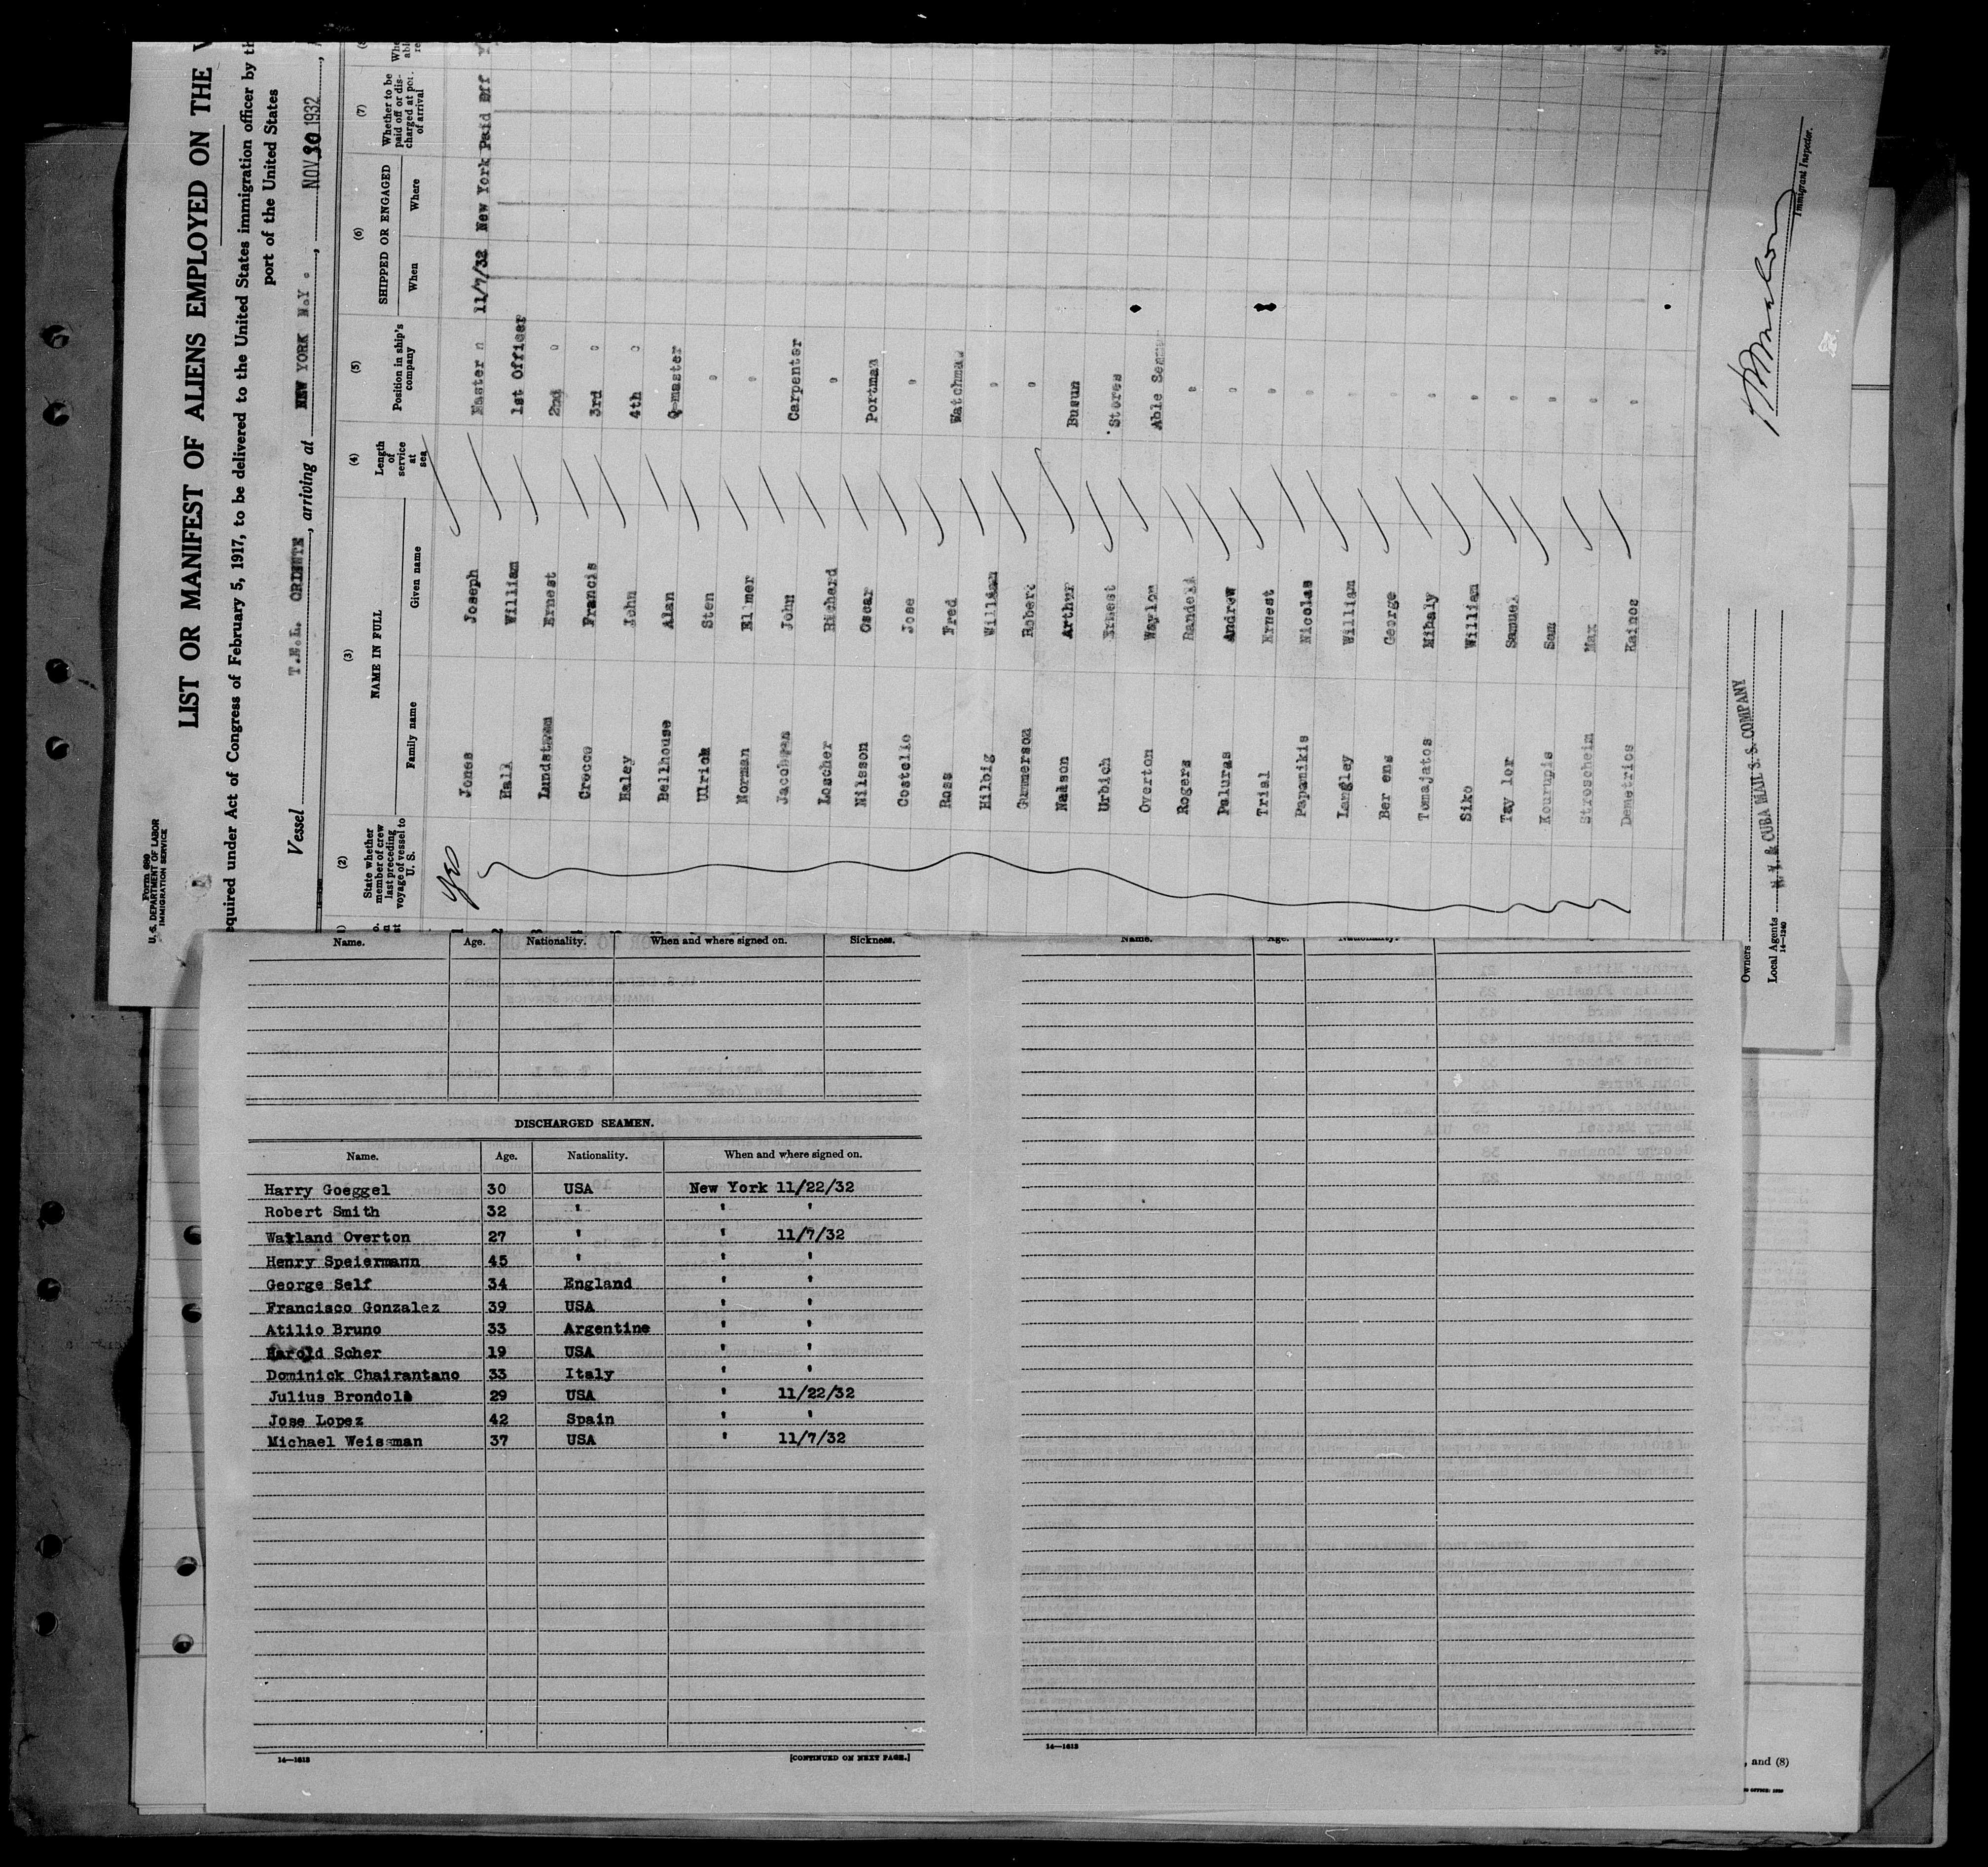 Form 689
U. S. DEPARTMENT OF LABOR
IMMIGRATION SERVICE
LIST OR MANIFEST OF ALIENS EMPLOYED ON THE
equired under Act of Congress of February 5, 1917, to be delivered to the United States immigration officer by th
port of the United States
Vessel T.E.L. ORIENTE, arriving at NEW YORK N.Y., NOV 30 1932,
(2) (3) (4) (5) (6) (7)
State whether member of crew last preceding voyage of vessel to U. S.
NAME IN FULL
Family name Given name
Length of service at sea
Position in ship's company
SHIPPED OR ENGAGED
When Where
Whether to be paid off or discharged at port of arrival
Yes Jones Joseph Master 11/7/32 New York Paid Off
Hall William 1st Officer
Lundstrom Ernest 2nd "
Crocco Francis 3rd "
Haley John 4th "
Bellhouse Alan Q-master
Ulrich Sten "
Norman Elmer "
Jacobsen John Carpenter
Loscher Richard "
Nilsson Oscar Portman
Costello Jose "
Ross Fred Watchman
Hilbig William "
Gummerson Robert "
Nelson Arthur Busun
Urbich Ernest Stores
Overton Waylon Able Seaman
Rogers Randell "
Paluras Andrew "
Trial Ernest "
Papamikis Nicolas "
Langley William "
Ber ens George "
Tomajatos Mihaly "
Siko William "
Tay lor Samuel "
Kourupis Sam "
Stroscheim Max "
Demetrios Kainos "
Immigrant Inspector.
Owners
Local Agents N. Y. & CUBA MAIL S. S. COMPANY
14—1240
Name. Age. Nationality. When and where signed on. Sickness.
DISCHARGED SEAMEN.
Name. Age. Nationality. When and where signed on.
Harry Goeggel 30 USA New York 11/22/32
Robert Smith 32 " " "
Warland Overton 27 " " 11/7/32
Henry Speiermann 45 " " "
George Self 34 England " "
Francisco Gonzalez 39 USA " "
Atilio Bruno 33 Argentine " "
Harold Scher 19 USA " "
Dominick Chairantano 33 Italy " "
Julius Brondola 29 USA " 11/22/32
Jose Lopez 42 Spain " "
Michael Weissman 37 USA " 11/7/32
14—1613 [CONTINUED ON NEXT PAGE.]
Name. Age. Nationality.
14—1613
, and (8)